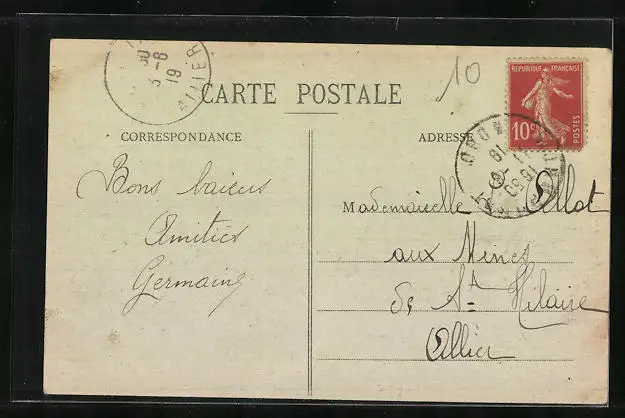 10
CARTE POSTALE
REPUBLIQUE FRANÇAISE
10c
POSTES
3-8
19
ALLIER
CORRESPONDANCE
ADRESSE
Bons baisers
Amitiés
Germaine
Mademoiselle
aux Mines
de St Hilaire
Allier